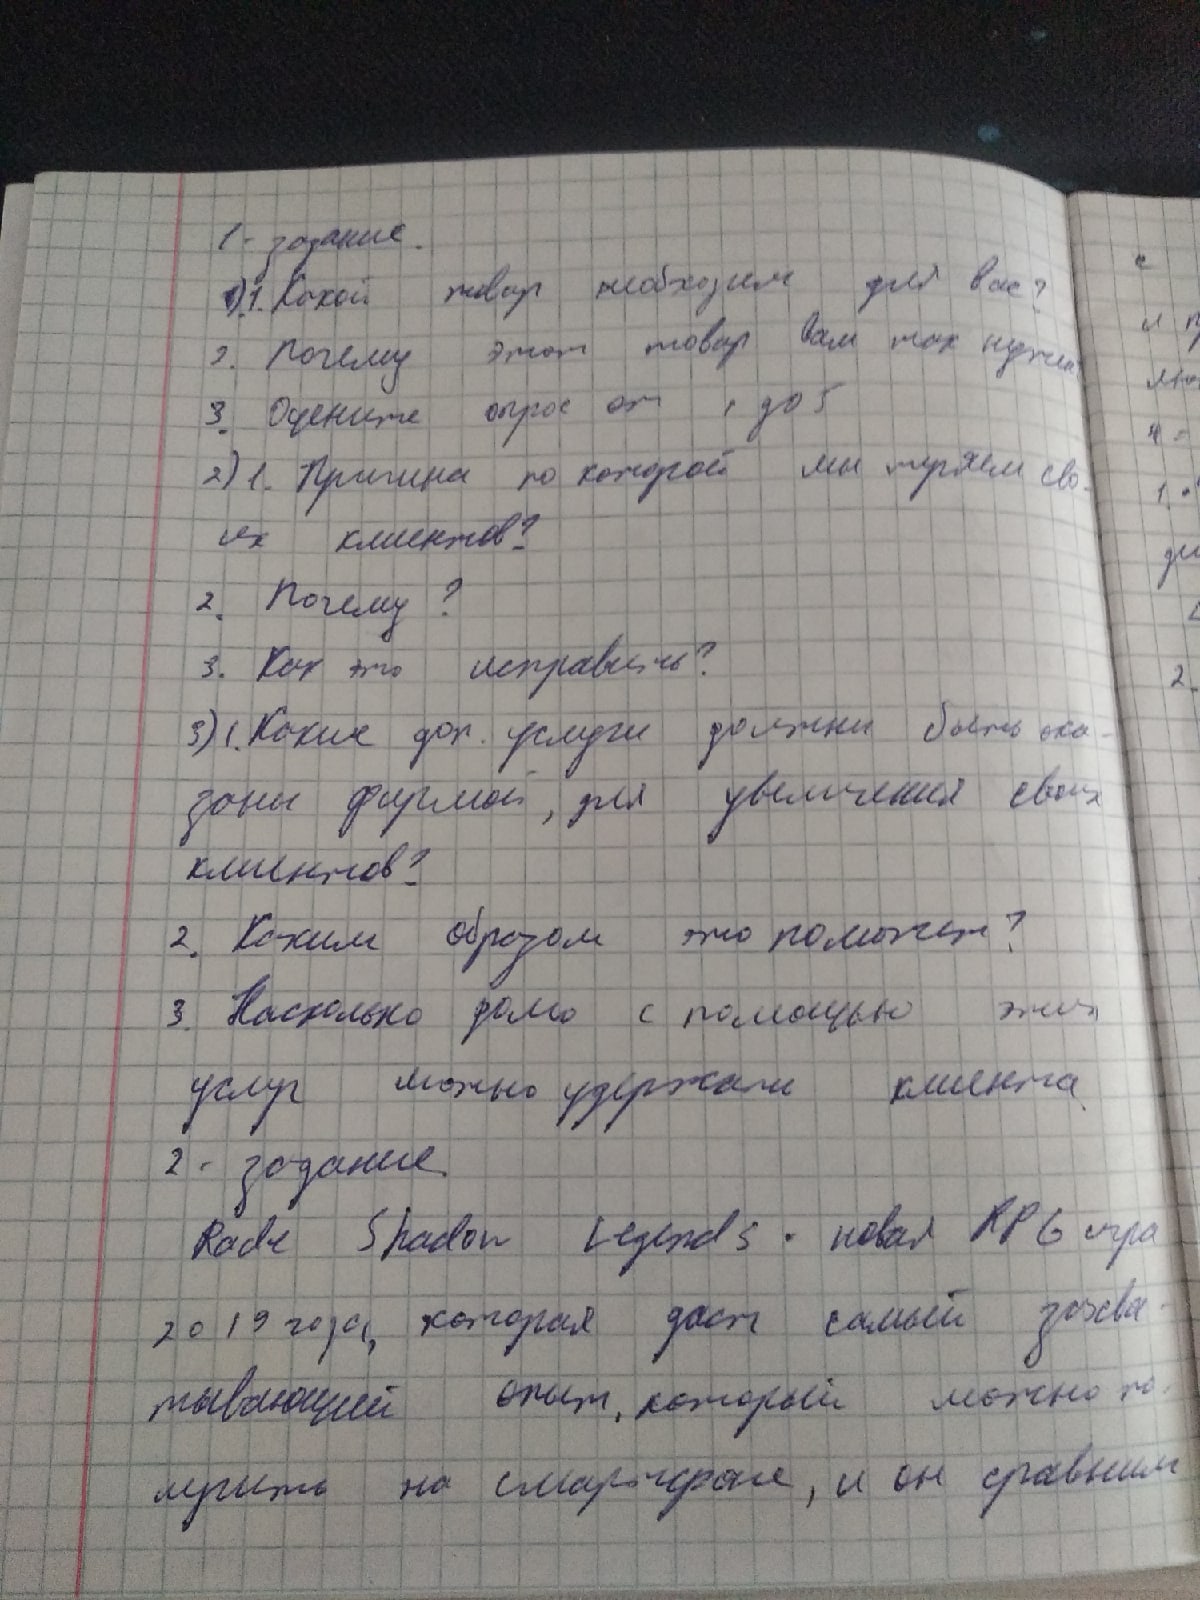 1- задание.
1).1. Какой товар необходим для вас?
2. Почему этот товар вам так нужен?
3. Оцените опрос от 1 до 5
2) 1. Причина по которой мы теряем сво-
их клиентов?
2. Почему?
3. Как это исправить?
3) 1. Какие доп. услуги должны быть ока-
заны фирмой, для увеличения своих
клиентов?
2. Каким образом это поможет?
3. Насколько долго с помощью этих
услуг можно удержать клиента
2- задание.
Rade Shadow Legends - новая RPG игра
2019 года, которая даст самый захва-
тывающий опыт, который можно по-
лучить на смартфоне, и он сравним
с
и пр
лю
4 -
1.
ди
2.